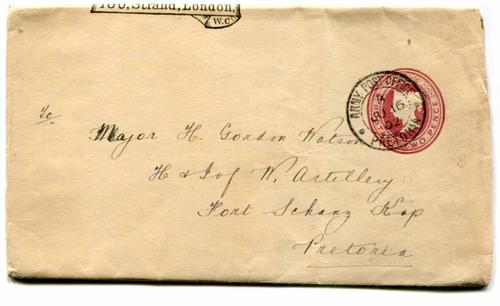 190, Strand, London,
W.C.
To
Major H. Gordon Watson
H & I of W. Artillery
Fort Schanz Kop
Pretoria
ARMY POST OFFICE
16
02
PRETORIA
TWO PENCE